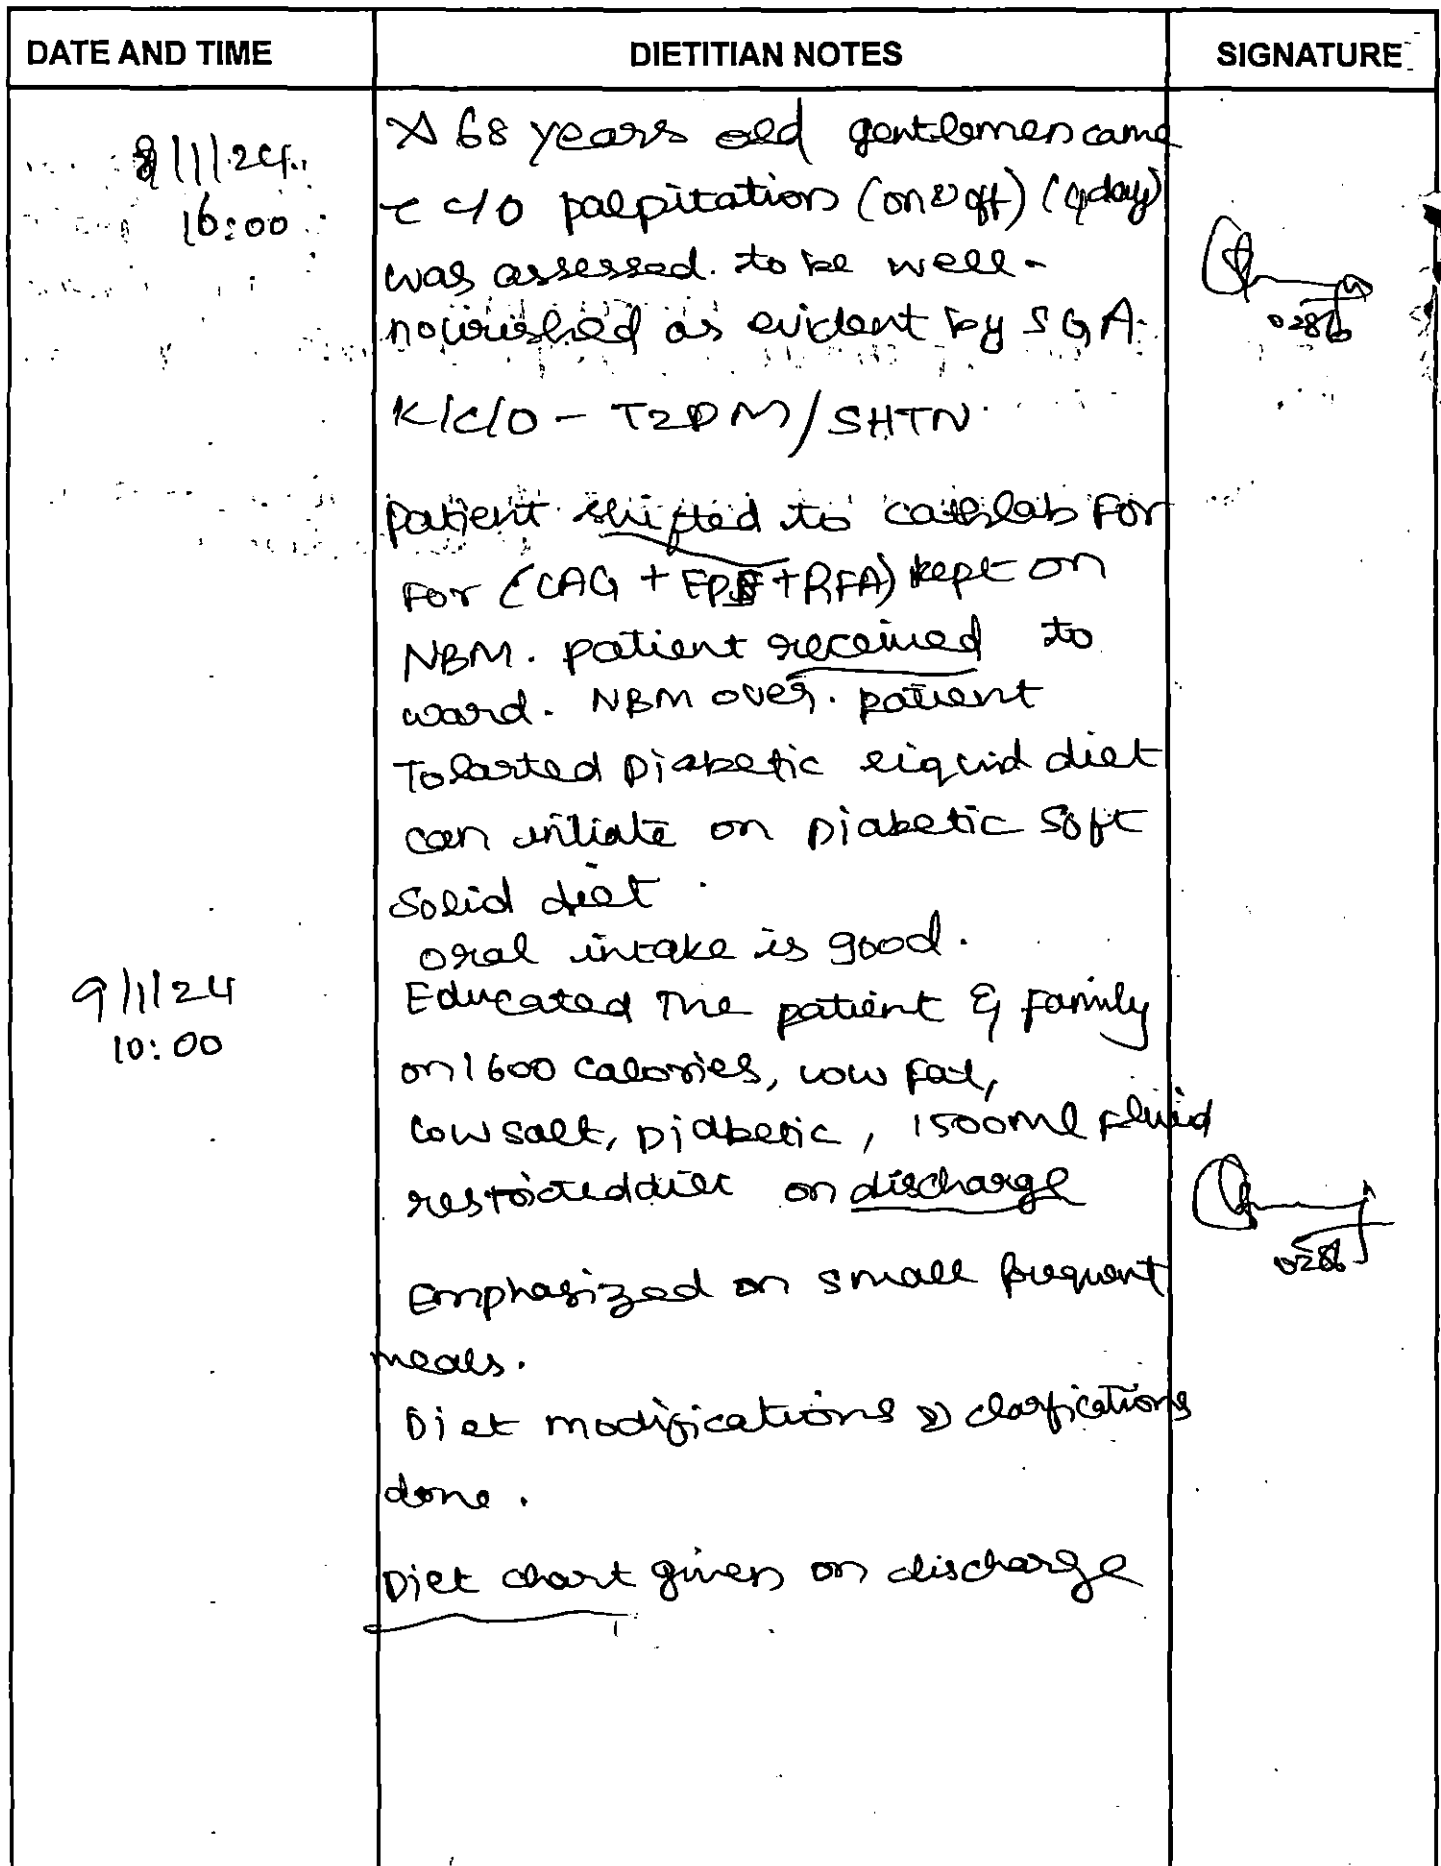 DATE AND TIME DIETITIAN NOTES SIGNATURE
8/1/24
16:00
A 68 years old gentlemen came
c c/o palpitation (on & off) (4day)
was assessed. to be well-
nourished as evident by SGA.
0286
K/c/o - T2DM/SHTN
patient shifted to cathlab For
For (CAG + EPS + RFA) kept on
NBM. patient received to
ward. NBM over. patient
Tolarted Diabetic liquid diet
can intiate on Diabetic Soft
Solid diet.
oral intake is good.
9/1/24
10:00
Educated The patient & Family
on 1600 calories, low Fat,
low salt, Diabetic, 1500ml Fluid
restricted diet on discharge
0286
Emphasized on small frequent
meals.
Diet modifications & clarfications
done.
Diet chart given on discharge